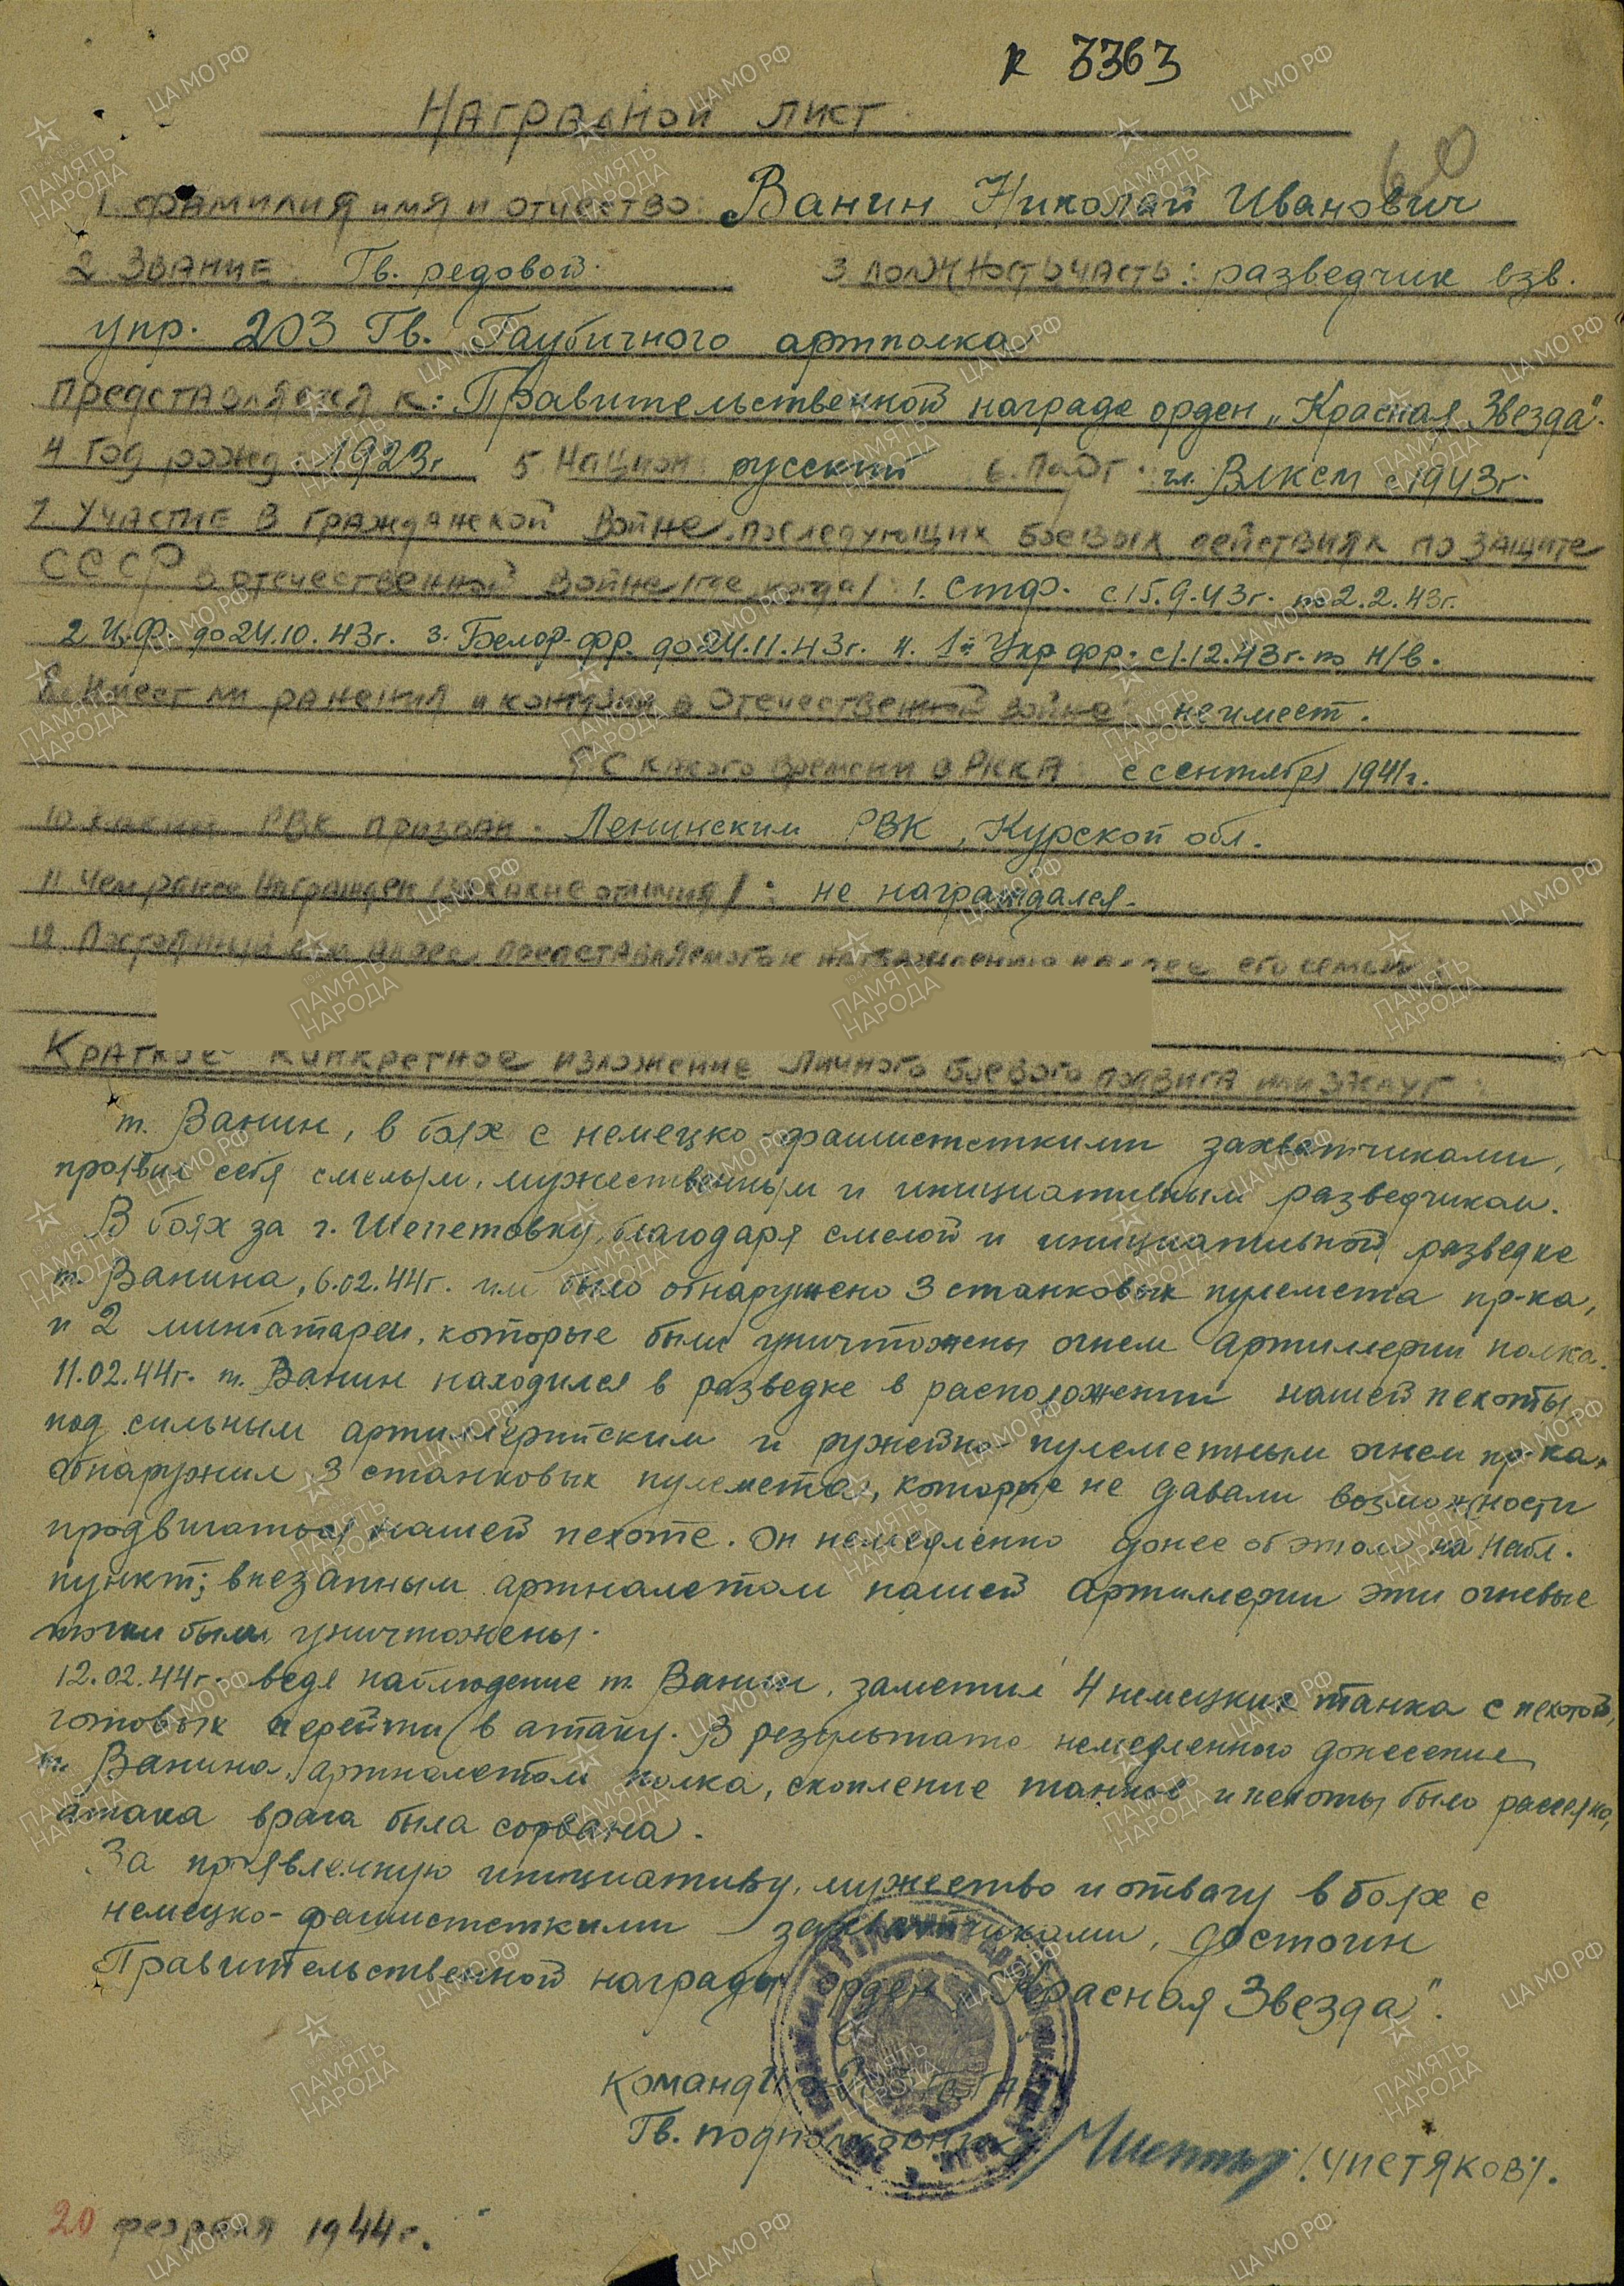 к 3363
Наградной лист
60
1. Фамилия имя и отчество: Ванин Николай Иванович
2. Звание: Гв. редовой. 3 должность часть: разведчик взв.
упр. 203 Гв. Гаубичного артполка
Представляется к: Правительственной награде орден „Красная Звезда".
4 Год рожд 1923г 5. Национ: русский 6. Парт: чл. ВЛКСМ с 1943г.
7 Участие в гражданской войне, последующих боевых действиях по защите
СССР в отечественной войне /где, когда/: 1. Стф. с 15.9.43г. по 2.2.43г.
2. Ц.Ф. до 24.10.43г. 3. Белор. фр. до 24.11.43г. 4. 1й Укр фр. с 1.12.43г. по н/в.
8. Имеет ли ранения и контузии в Отечественной войне: не имеет.
9. С какого времени в РККА: с сентября 1941г.
10 Каким РВК призван: Ленинским РВК, Курской обл.
11 Чем ранее награжден /за какие отличия/: не награждался.
12. Постоянный дом. адрес, представляемого к награждению и адрес его семьи:
Краткое конкретное изложение личного боевого подвига или заслуг:
т. Ванин, в боях с немецко-фашистсткими захватчиками,
проявил себя смелым, мужественным и инициативным разведчиком.
В боях за г. Шепетовку, благодаря смелой и инициативной разведке
т. Ванина, 6.02.44г. им было обнаружено 3 станковых пулемета пр-ка,
и 2 минбатареи, которые были уничтожены огнем артиллерии полка.
11.02.44г. т. Ванин находился в разведке в расположении нашей пехоты,
под сильным артиллерийским и ружейно-пулеметным огнем пр-ка,
обнаружил 3 станковых пулемета, которые не давали возможности
продвигаться нашей пехоте. Он немедленно донес об этом на набл.
пункт; внезапным артналетом нашей артиллерии эти огневые
точки были уничтожены.
12.02.44г. ведя наблюдение т. Ванин, заметил 4 немецких танка с пехотой,
готовых перейти в атаку. В результате немедленного донесение
т. Ванина, артналетом полка, скопление танков и пехоты было рассеяно,
атака врага была сорвана.
За проявленную инициативу, мужество и отвагу в боях с
немецко-фашистсткими захватчиками, достоин
Правительственной награды орден „Красная Звезда".
Командир
Гв. подполковник /Чистяков/.
20 февраля 1944г.